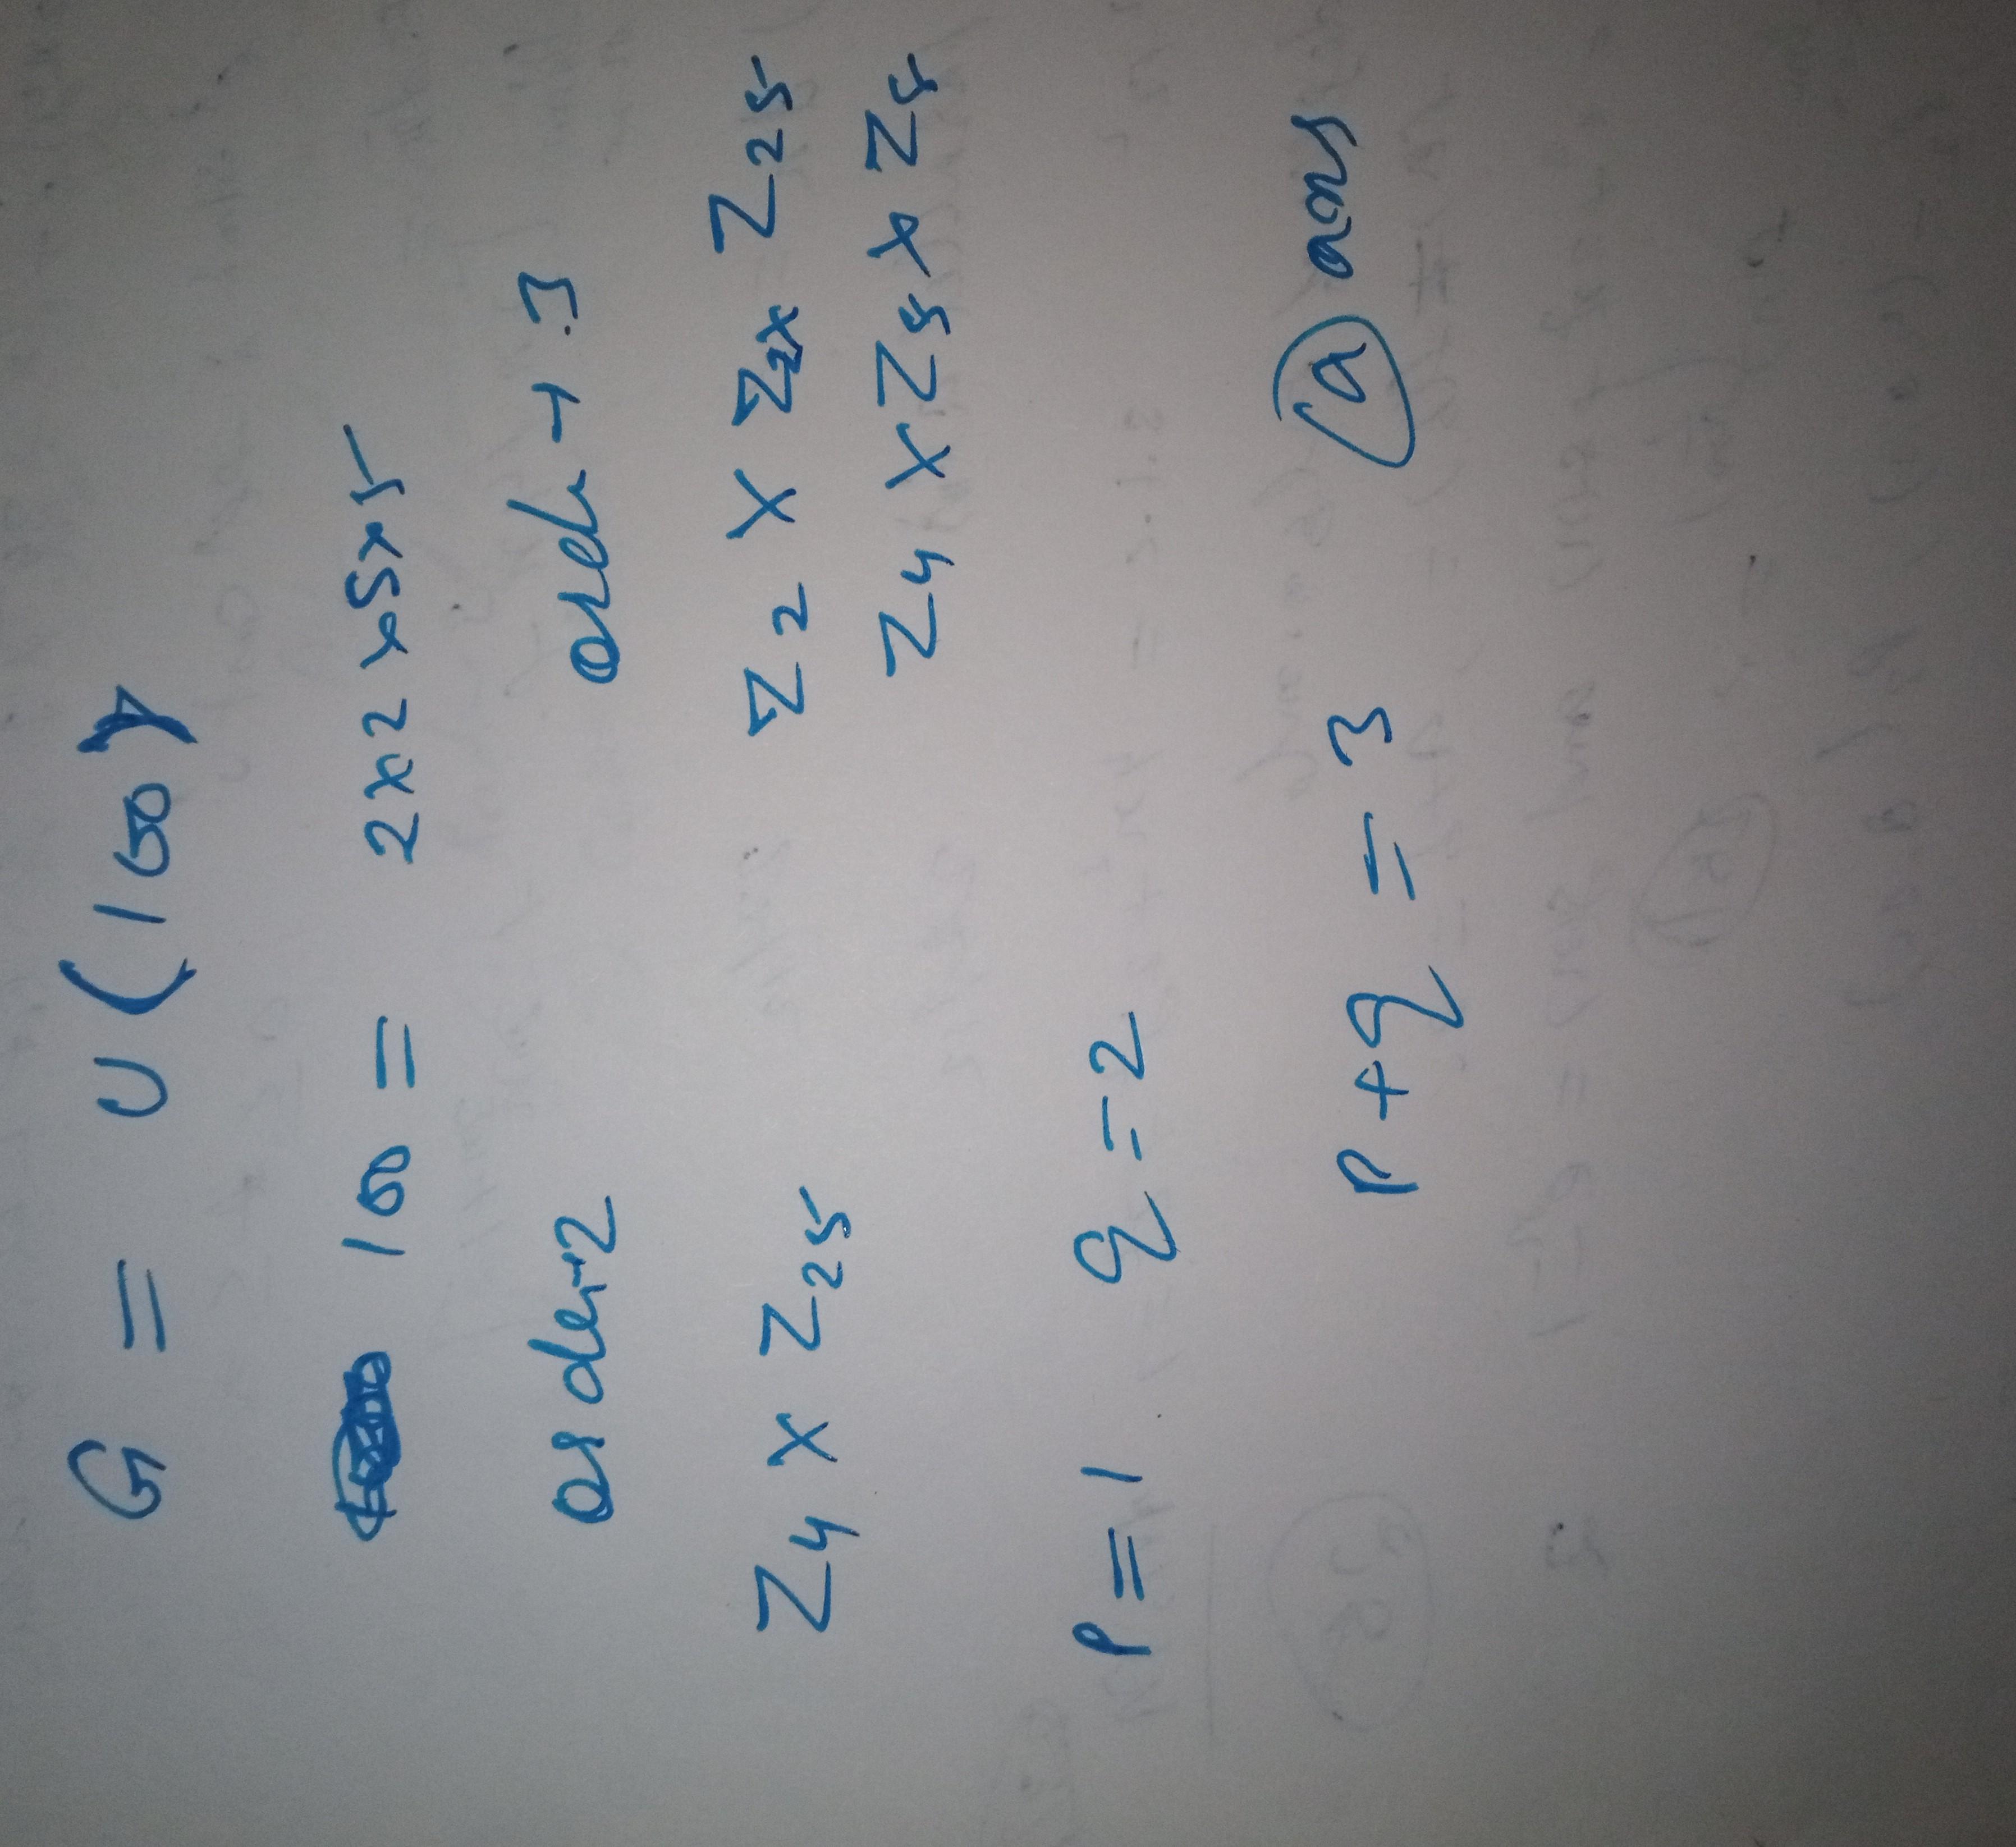 G = U(100)
100 = 2x2x5x5
order 2 order 3
Z4 x Z25 Z2 x Z2x Z25
Z4 x Z5 x Z5
P=1 q=2
P+q = 3 a